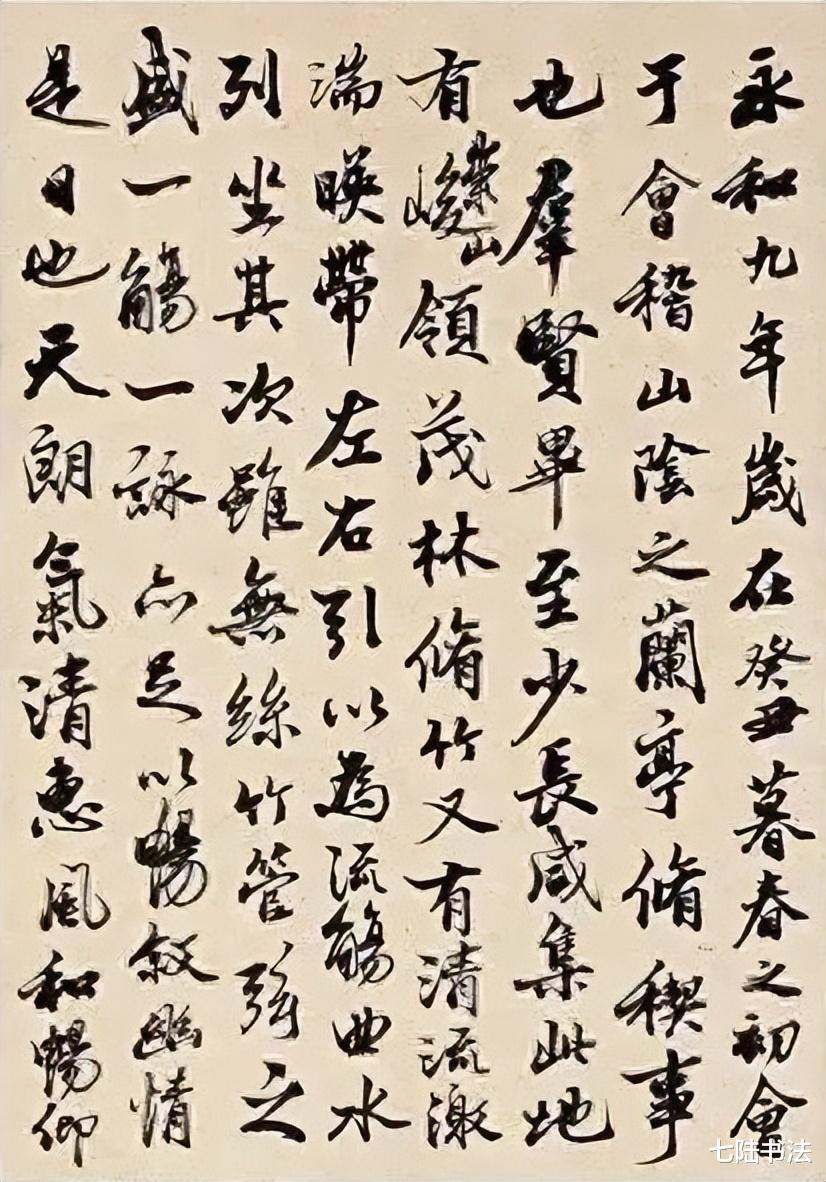 永和九年歲在癸丑暮春之初會
于會稽山陰之蘭亭脩稧事
也羣賢畢至少長咸集此地
有崇山峻領茂林脩竹又有清流激
湍暎帶左右引以為流觴曲水
列坐其次雖無絲竹管弦之
盛一觴一詠亦足以暢敘幽情
是日也天朗氣清惠風和暢仰
七陆书法